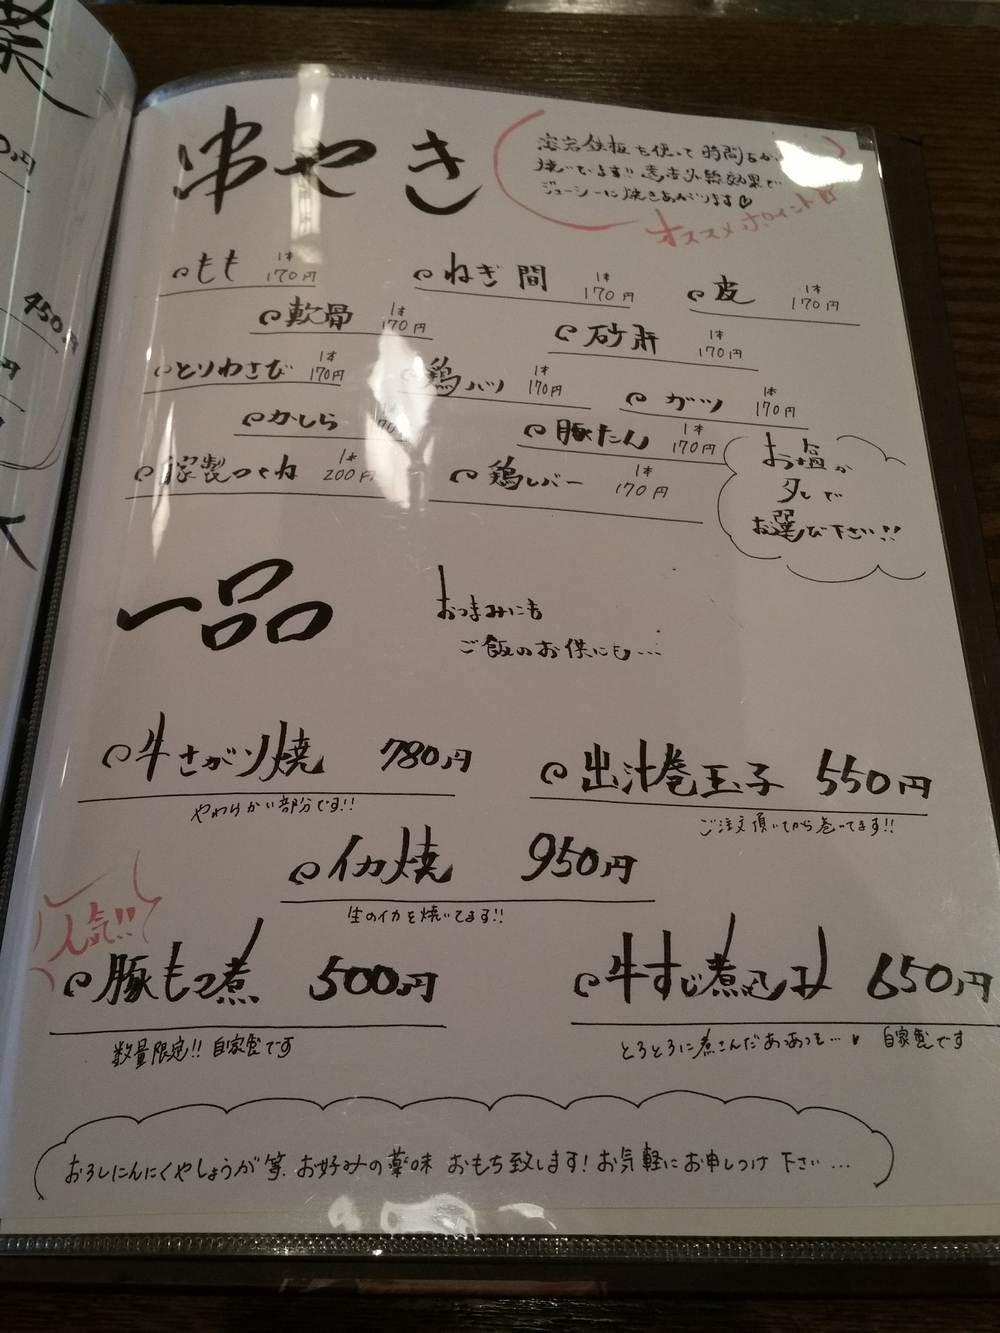 串やき
溶岩鉄板を使って時間をか
焼いています!!遠赤外線効果で
ジューシーに焼きあがります♡
オススメポイント!!
もも 1本 170円
ねぎ間 1本 170円
皮 1本 170円
軟骨 1本 170円
砂肝 1本 170円
とりわさび 1本 170円
鶏ハツ 1本 170円
ガツ 1本 170円
かしら
豚たん 1本 170円
自家製つくね 1本 200円
鶏レバー 1本 170円
お塩か
タレで
お選び下さい!!
一品
おつまみにも
ご飯のお供にも…
牛さがり焼 780円
やわらかい部分です!!
出汁巻玉子 550円
ご注文頂いてから巻いてます!!
イカ焼 950円
生のイカを焼いてます!!
人気!!
豚もつ煮 500円
数量限定!! 自家製です
牛すじ煮込み 650円
とろとろに煮こんだあつあつを…♥ 自家製です
おろしにんにくやしょうが等、お好みの薬味 おもち致します!お気軽にお申しつけ下さい…
450円
円